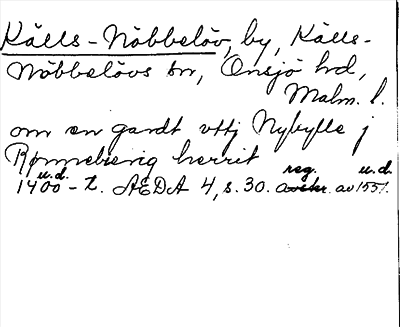 Källs-Nöbbelöv, by, Källs-
Nöbbelövs sn, Onsjö hd,
Malm. l.
om en gardt vttj Nybylle j
Rønnebierig herrit
u.d. reg. u.d.
1400-t. AEDA 4, s. 30. avskr. av 1551.